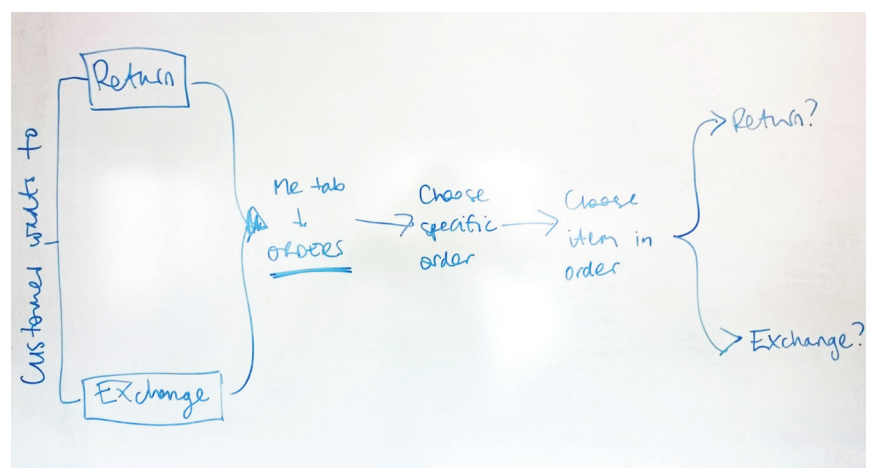 Customer wants to
Return
Exchange
Me tab
ORDERS
Choose
specific
order
Choose
item in
order
Return?
Exchange?